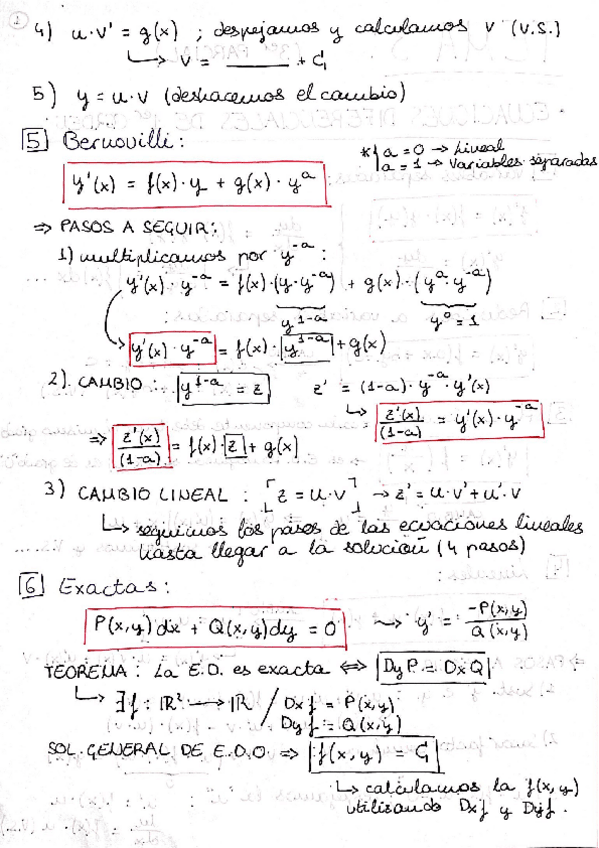 4) u·v' = g(x) ; despejamos y calculamos v (v.s.)
↳ v = ____ + C₁
5) y = u·v (deshacemos el cambio)
5 Bernouilli:
* a = 0 → Lineal
a = 1 → Variables separadas
y'(x) = f(x)·y + g(x)·y^a
⇒ PASOS A SEGUIR:
1) multiplicamos por y^-a :
y'(x)·y^-a = f(x)·(y·y^-a) + g(x)·(y^a·y^-a)
y^1-a y^0 = 1
y'(x)·y^-a = f(x)·y^1-a + g(x)
2) CAMBIO : y^1-a = z z' = (1-a)·y^-a·y'(x)
↳ z'(x)/(1-a) = y'(x)·y^-a
⇒ z'(x)/(1-a) = f(x)·z + g(x)
3) CAMBIO LINEAL : z = u·v → z' = u·v' + u'·v
↳ seguimos los pasos de las ecuaciones lineales
hasta llegar a la solución (4 pasos)
6 Exactas:
P(x,y)dx + Q(x,y)dy = 0 → y' = -P(x,y)/Q(x,y)
TEOREMA : La E.D. es exacta ⇔ DyP = DxQ
↳ ∃f : ℝ² → ℝ / Dxf = P(x,y)
Dyf = Q(x,y)
SOL. GENERAL DE E.D.O ⇒ f(x,y) = C₁
↳ calculamos la f(x,y)
utilizando Dxf y Dyf.